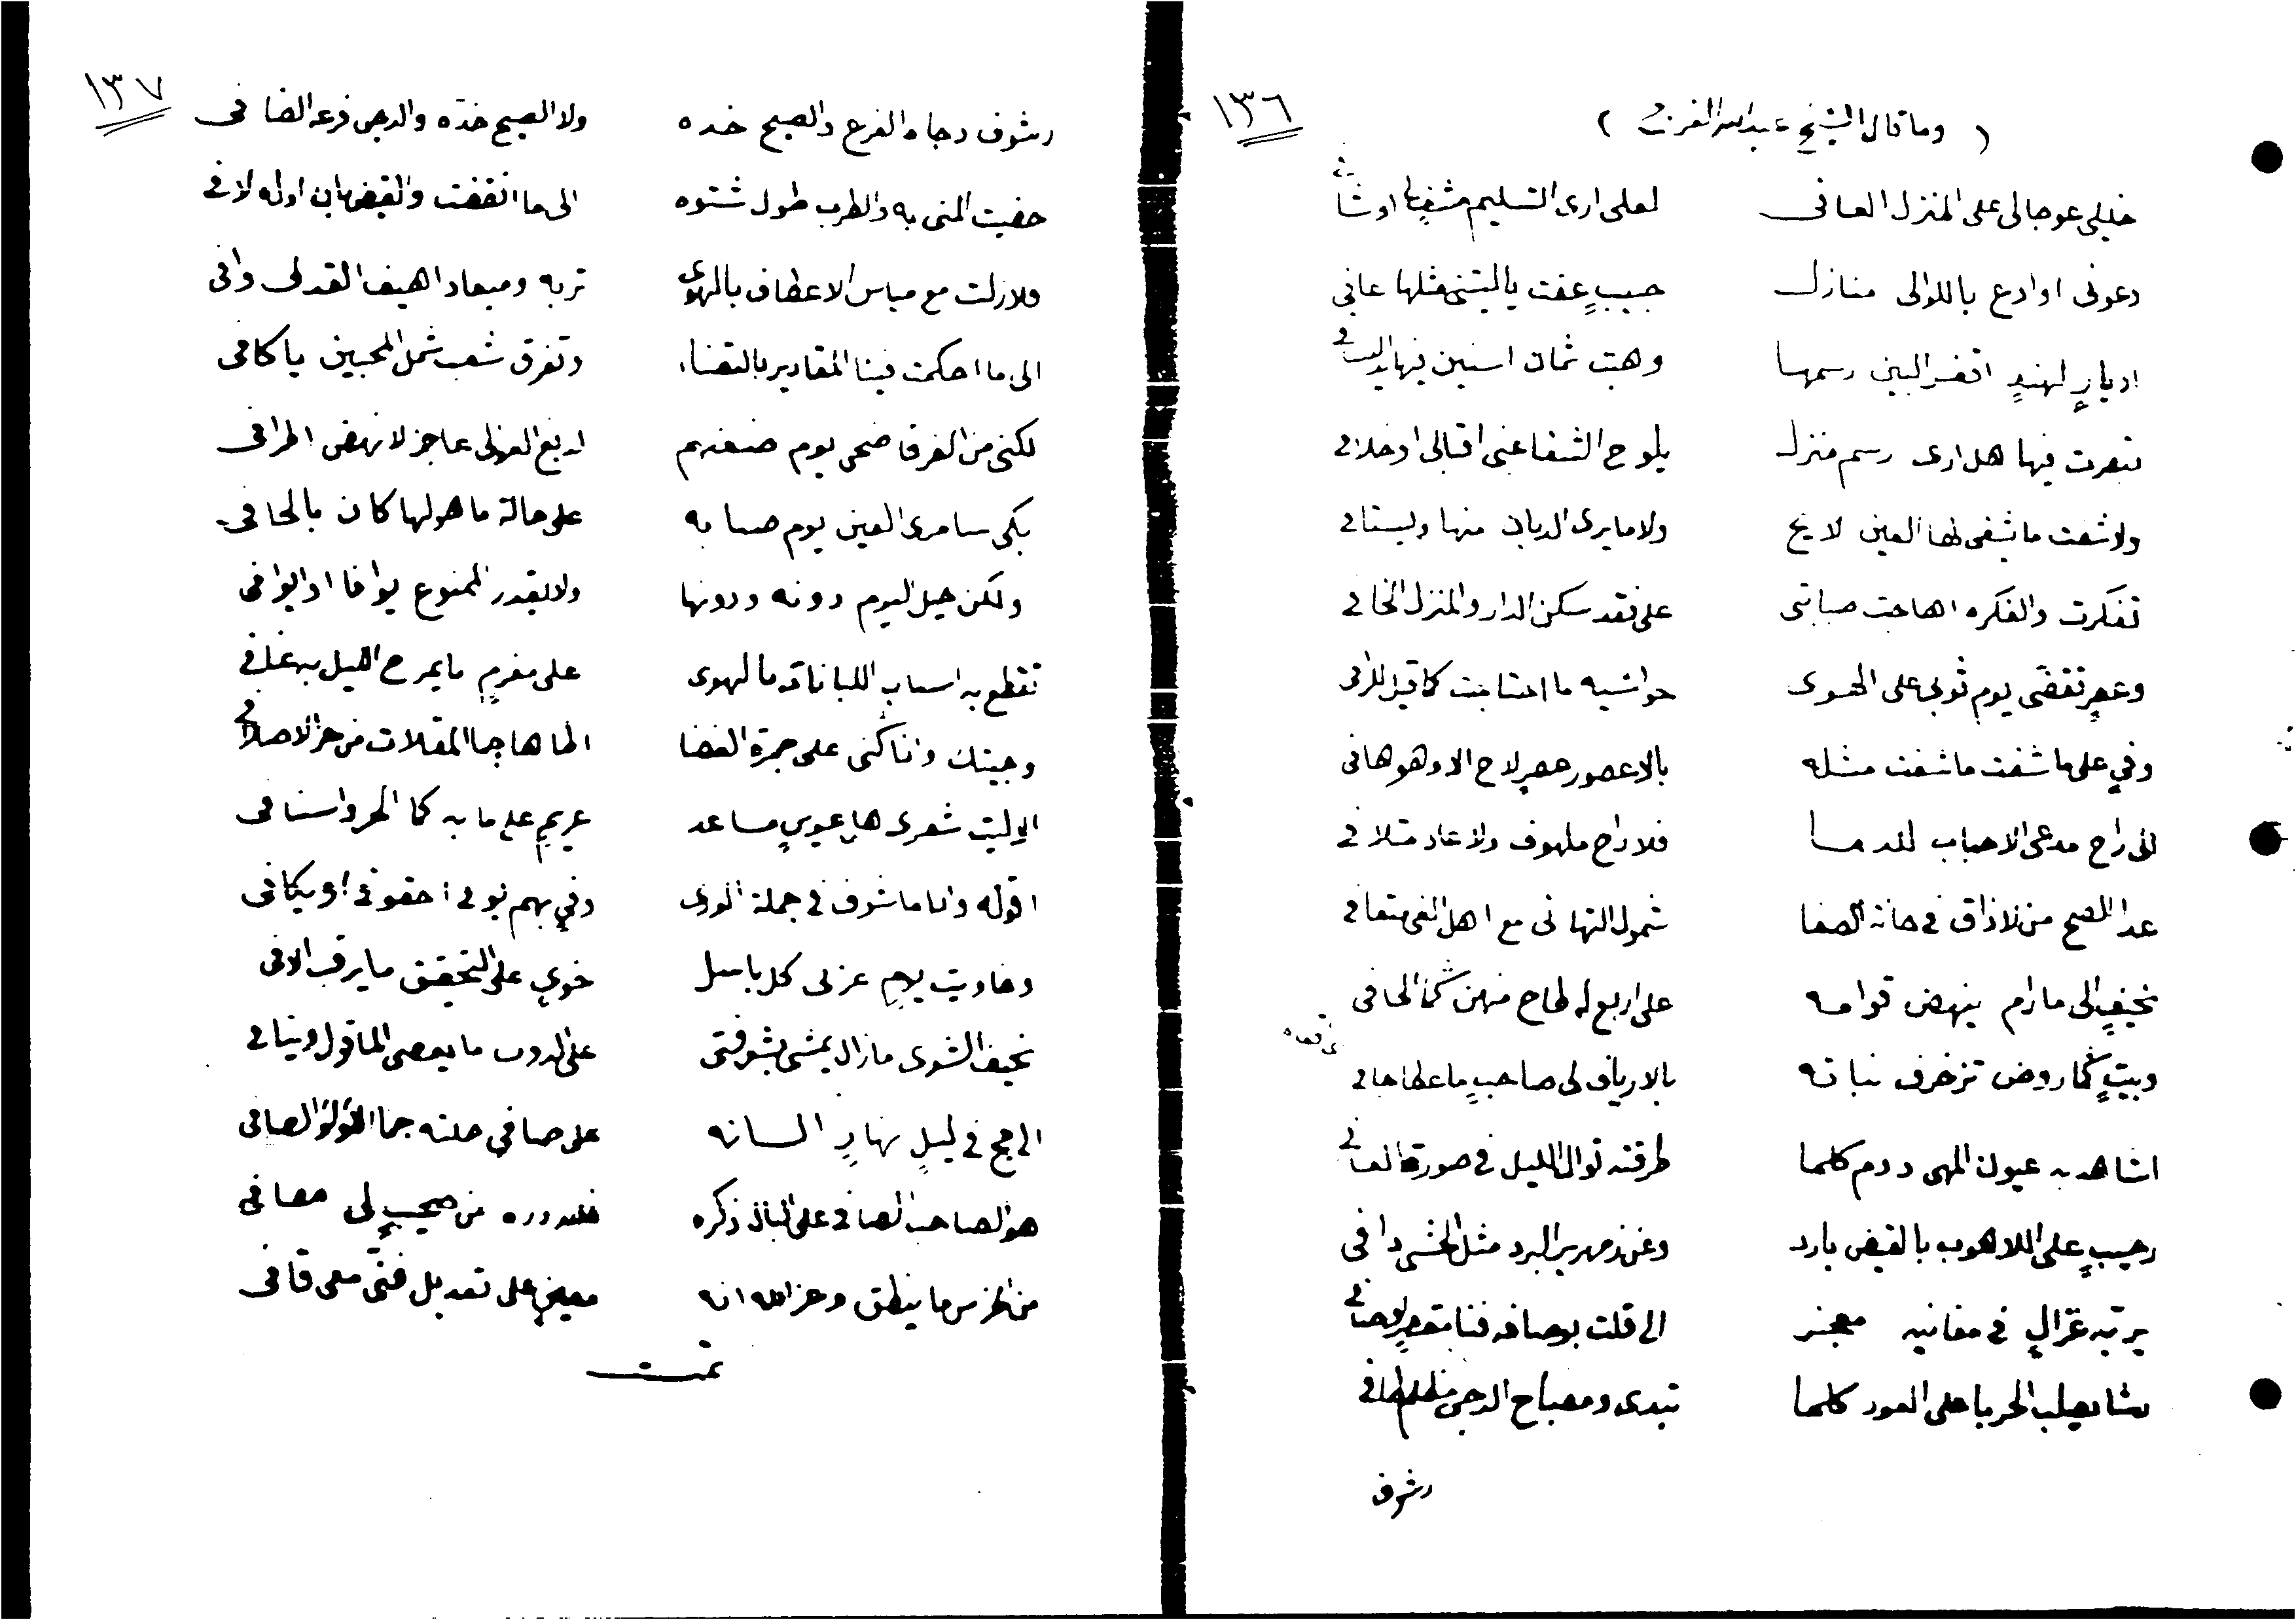 ١٣٦
( وما قال الشيخ عبدالله الفرج )
خليلي عوجا لي على المنزل العافي لعلي ارى التسليم مشفيا اوشافي
دعوني اوادع باللوالى منازل حبيبٍ عفت يا ليتني مثلها عافي
اديارٍ لهندٍ اقفر البين رسمها وهبت ثمان اسنين فيها
تبصرت فيها هل ارى رسم منزل يلوح الشفا عني اقبالي اوخلافي
ولا شفت ما يشفي لها العين لايح ولا ما يرى الديان منها ويستافي
تفكرت والفكره اهاجت صبابتي على فقد سكن الدار والمنزل الخافي
وعصرٍ تقضى يوم ثوبي على الهوى حواشيه ما احتاجت كما قيل للرافي
وفيٍ على ما شفت ما شفت مثله بالاعصور عصرٍ لاح الا وهو هافي
الى راح مدعى الاحباب فلا راح ملهوف ولا عاد متلافي
عدا الصبح من لا ذاق في حانة الصفا شمول التهاني مع اهل الغي متعافي
نحيفٍ الى ما رام ينهض قوامه على اربع له طاح منهن كما الحافي
وبيتٍ كما روض تزخرف نباته بالارياف لي صاحبٍ ما عطا جافي
اشاهد به عيون المهى ودم كلما طرقته توال الليل في صورة العافي
رحيبٍ على اللاهوب بالقيض بارد وعن زمهرير البرد مثل الحشى دافي
يربيه غزالٍ في مغانيه معجز الى قلت بوصافه فنا
يصلب الحربا على العود كلما تبدى ومصباح الدجى
رشوف
١٣٧
رشوف دجاه الفرع والصبح خده ولا الصبح خده والدجى فرعه الضافي
حضيت المنى به والطرب طول شتوه الى ما انقضت والقيض بان اوله لافي
ولا زلت مع مياس الاعطاف بالهوى تربه وميعاد اهيف القد لي وافي
الى ما احكمت فينا المقادير بالقضا وتفرق شعب شمل المحبين يا كافي
لكني من الفرقا ضحى يوم ضعنهم عاجز لا نهض اطرافي
بكى سامري العين يوم صبابه على حالة ما هولها كان بالخافي
ولكن حيل اليوم دونه ودونها ولا يقدر الممنوع يوافا او ايوافي
تقطع به اسباب اللبانات ما لهوى على مغرمٍ ما يمرح الليل به غافي
وجيتك وانا كني على جمرة الغضا الما هاجما المقلات من حر الاصدافي
الا ليت شعري هل عويٍ مساعد عريمٍ على ما به كما الحر واسنافي
اقوله وانا ما شوف في جملة الورى وفيٍ بهم يوفي احقوقي او يكافي
وخاويت يوم عزلي كل باسل خويٍ على التحقيق ما يرقب الافي
نحيف الشوى ما زال يمشي بشوفتي على الدرب ما يعصي الما قول وينافي
الى مج في ليلٍ نهارٍ السانه على صافيٍ خلته جما اللؤلؤ الصافي
هو الصاحب الصافي على البال ذكره فلله دره من صحيبٍ لي مصافي
من الخرس ما ينطق وعز الله انه معينٍ على تعديل فتى معي قافي
تمت